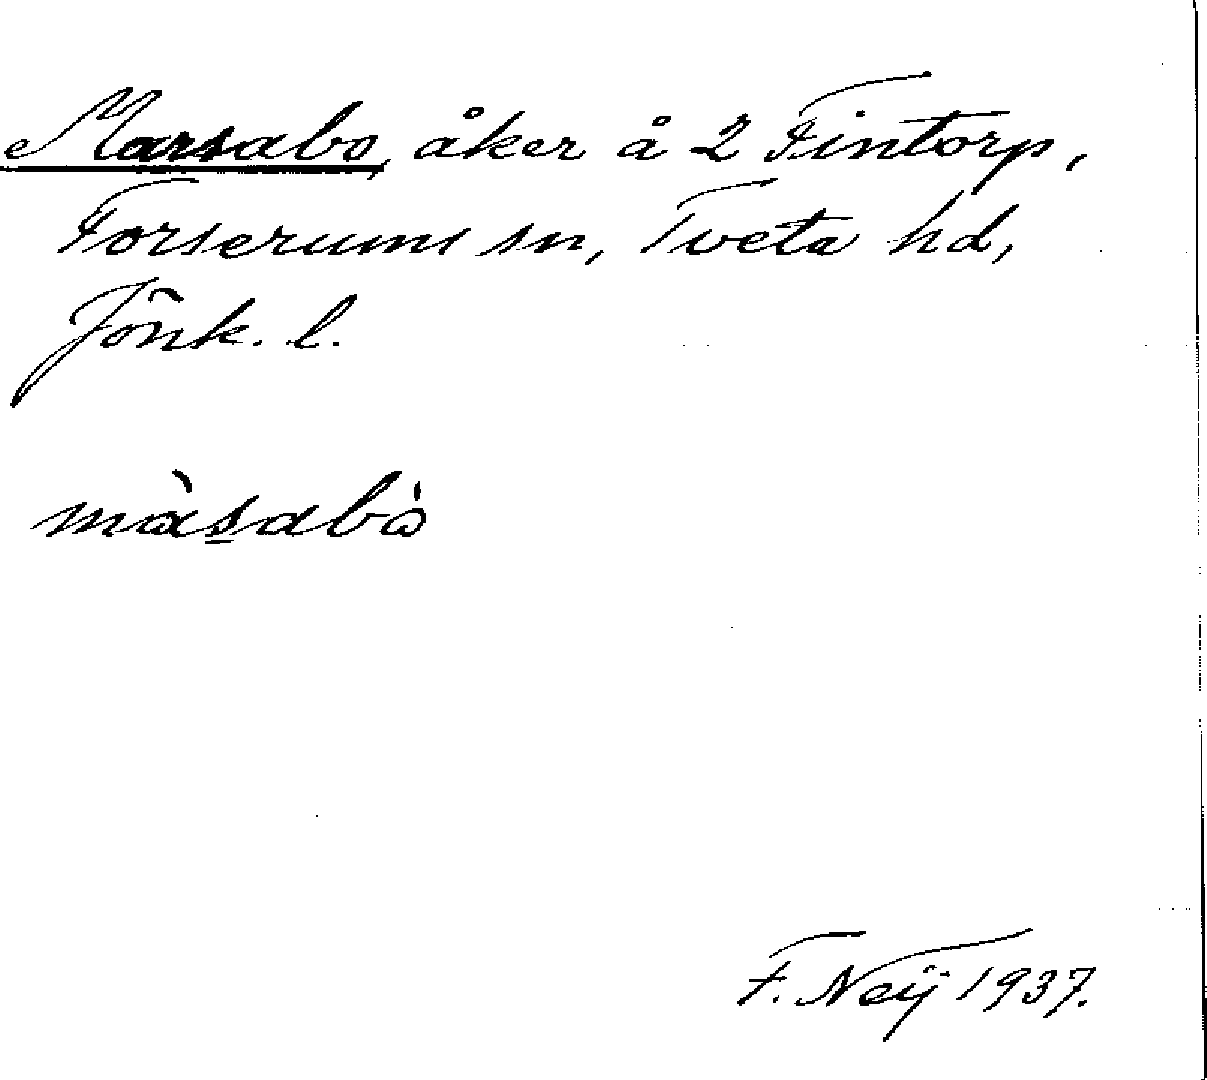 Marsabo, åker å 2 Fintorp,
Forserums sn, Tveta hd,
Jönk. l.
màs̱abò
F. Neij 1937.